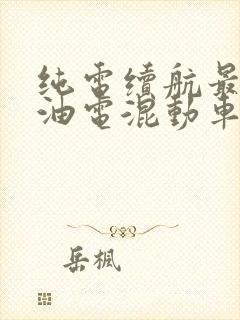 纯電續航最
油電混動車
岳楓